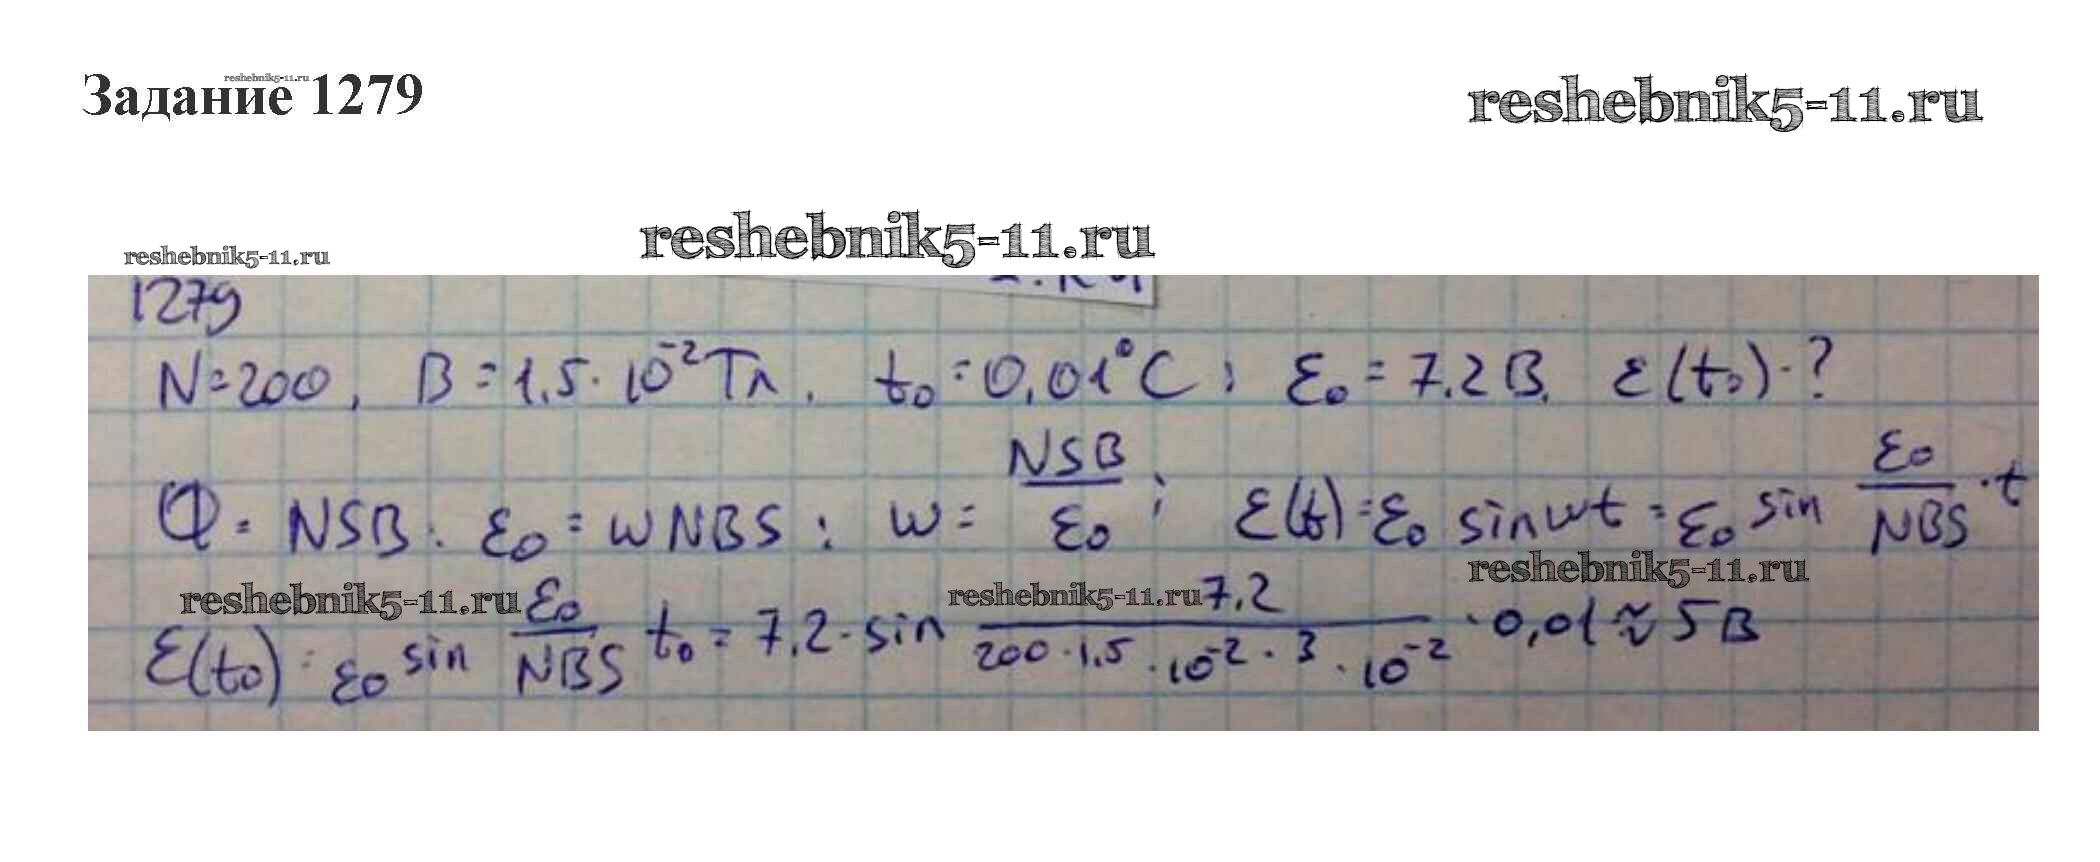 Задание 1279
reshebnik5-11.ru
reshebnik5-11.ru
reshebnik5-11.ru
reshebnik5-11.ru
1279
N=200, B=1,5·10⁻²Тл, t₀=0,01°C; ε₀=7,2 В, ε(t₀)-?
Φ=NSB; ε₀=wNBS; w=NSB/ε₀; ε(t)=ε₀ sin wt=ε₀ sin ε₀/NBS·t
reshebnik5-11.ru
reshebnik5-11.ru
reshebnik5-11.ru
ε(t₀)=ε₀ sin ε₀/NBS t₀=7,2·sin 7,2/200·1,5·10⁻²·3·10⁻²·0,01≈5В